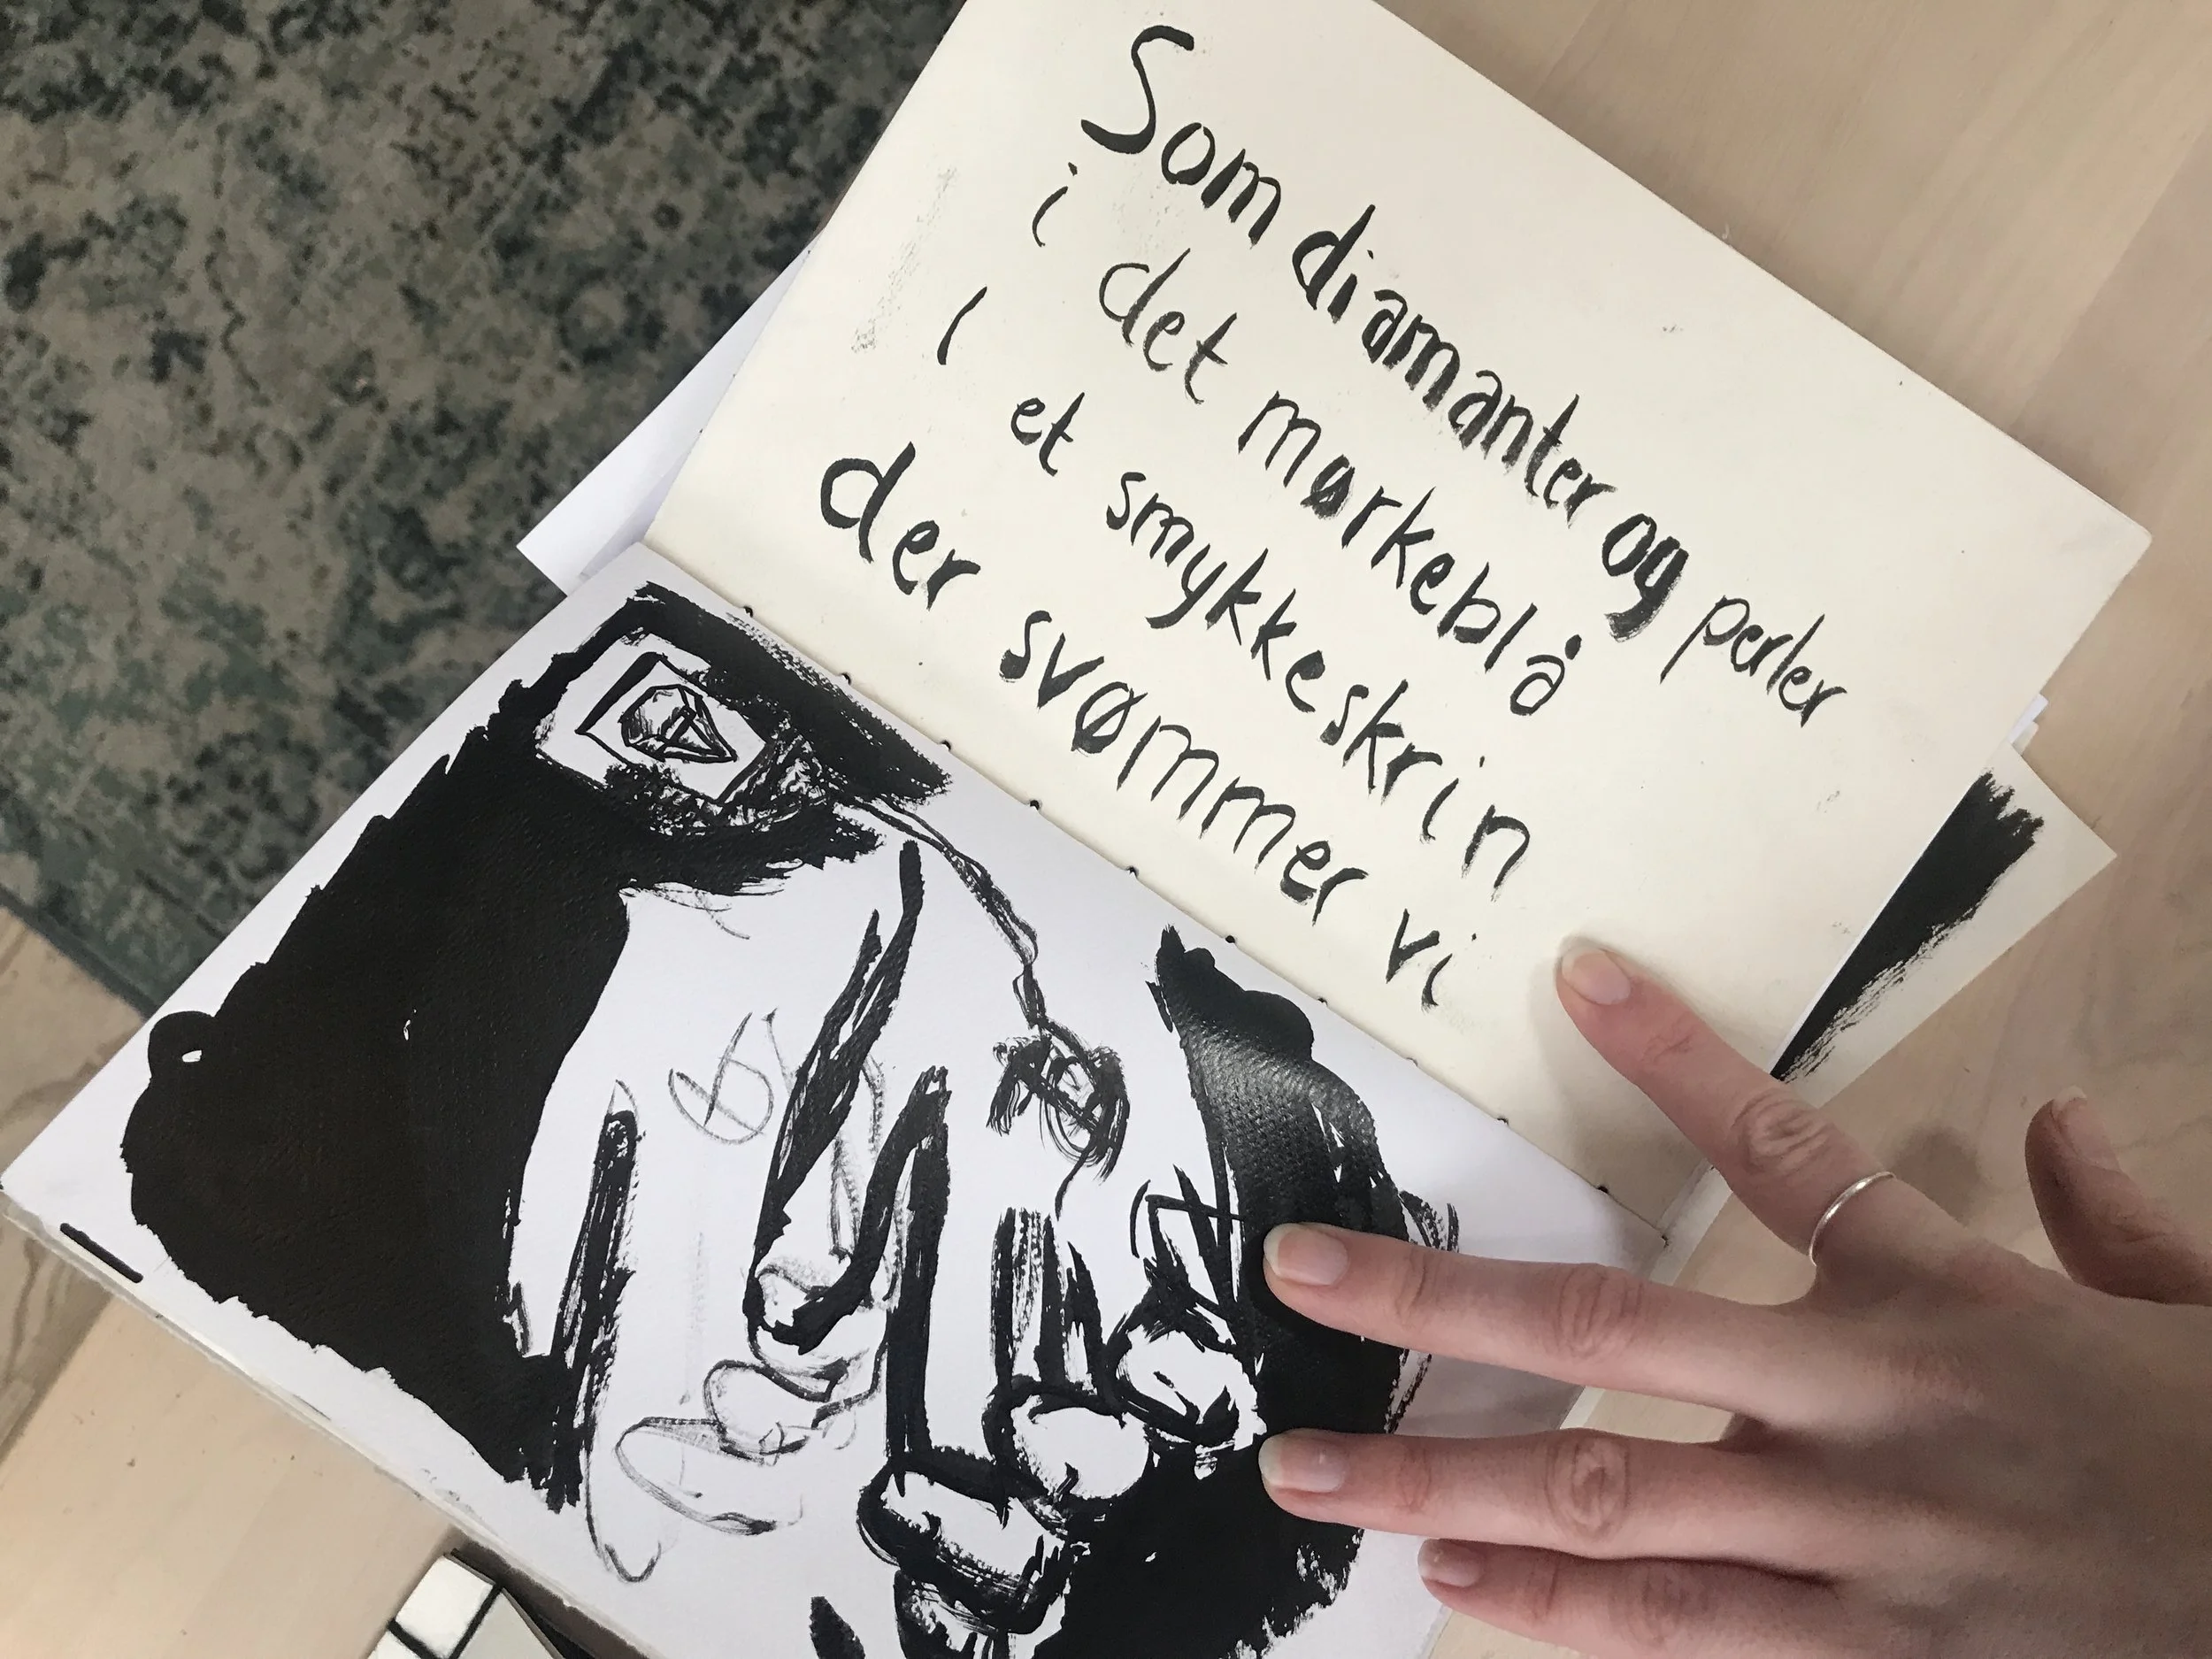 Som diamanter og perler
i det mørkeblå
I et smykkeskrin
der svømmer vi